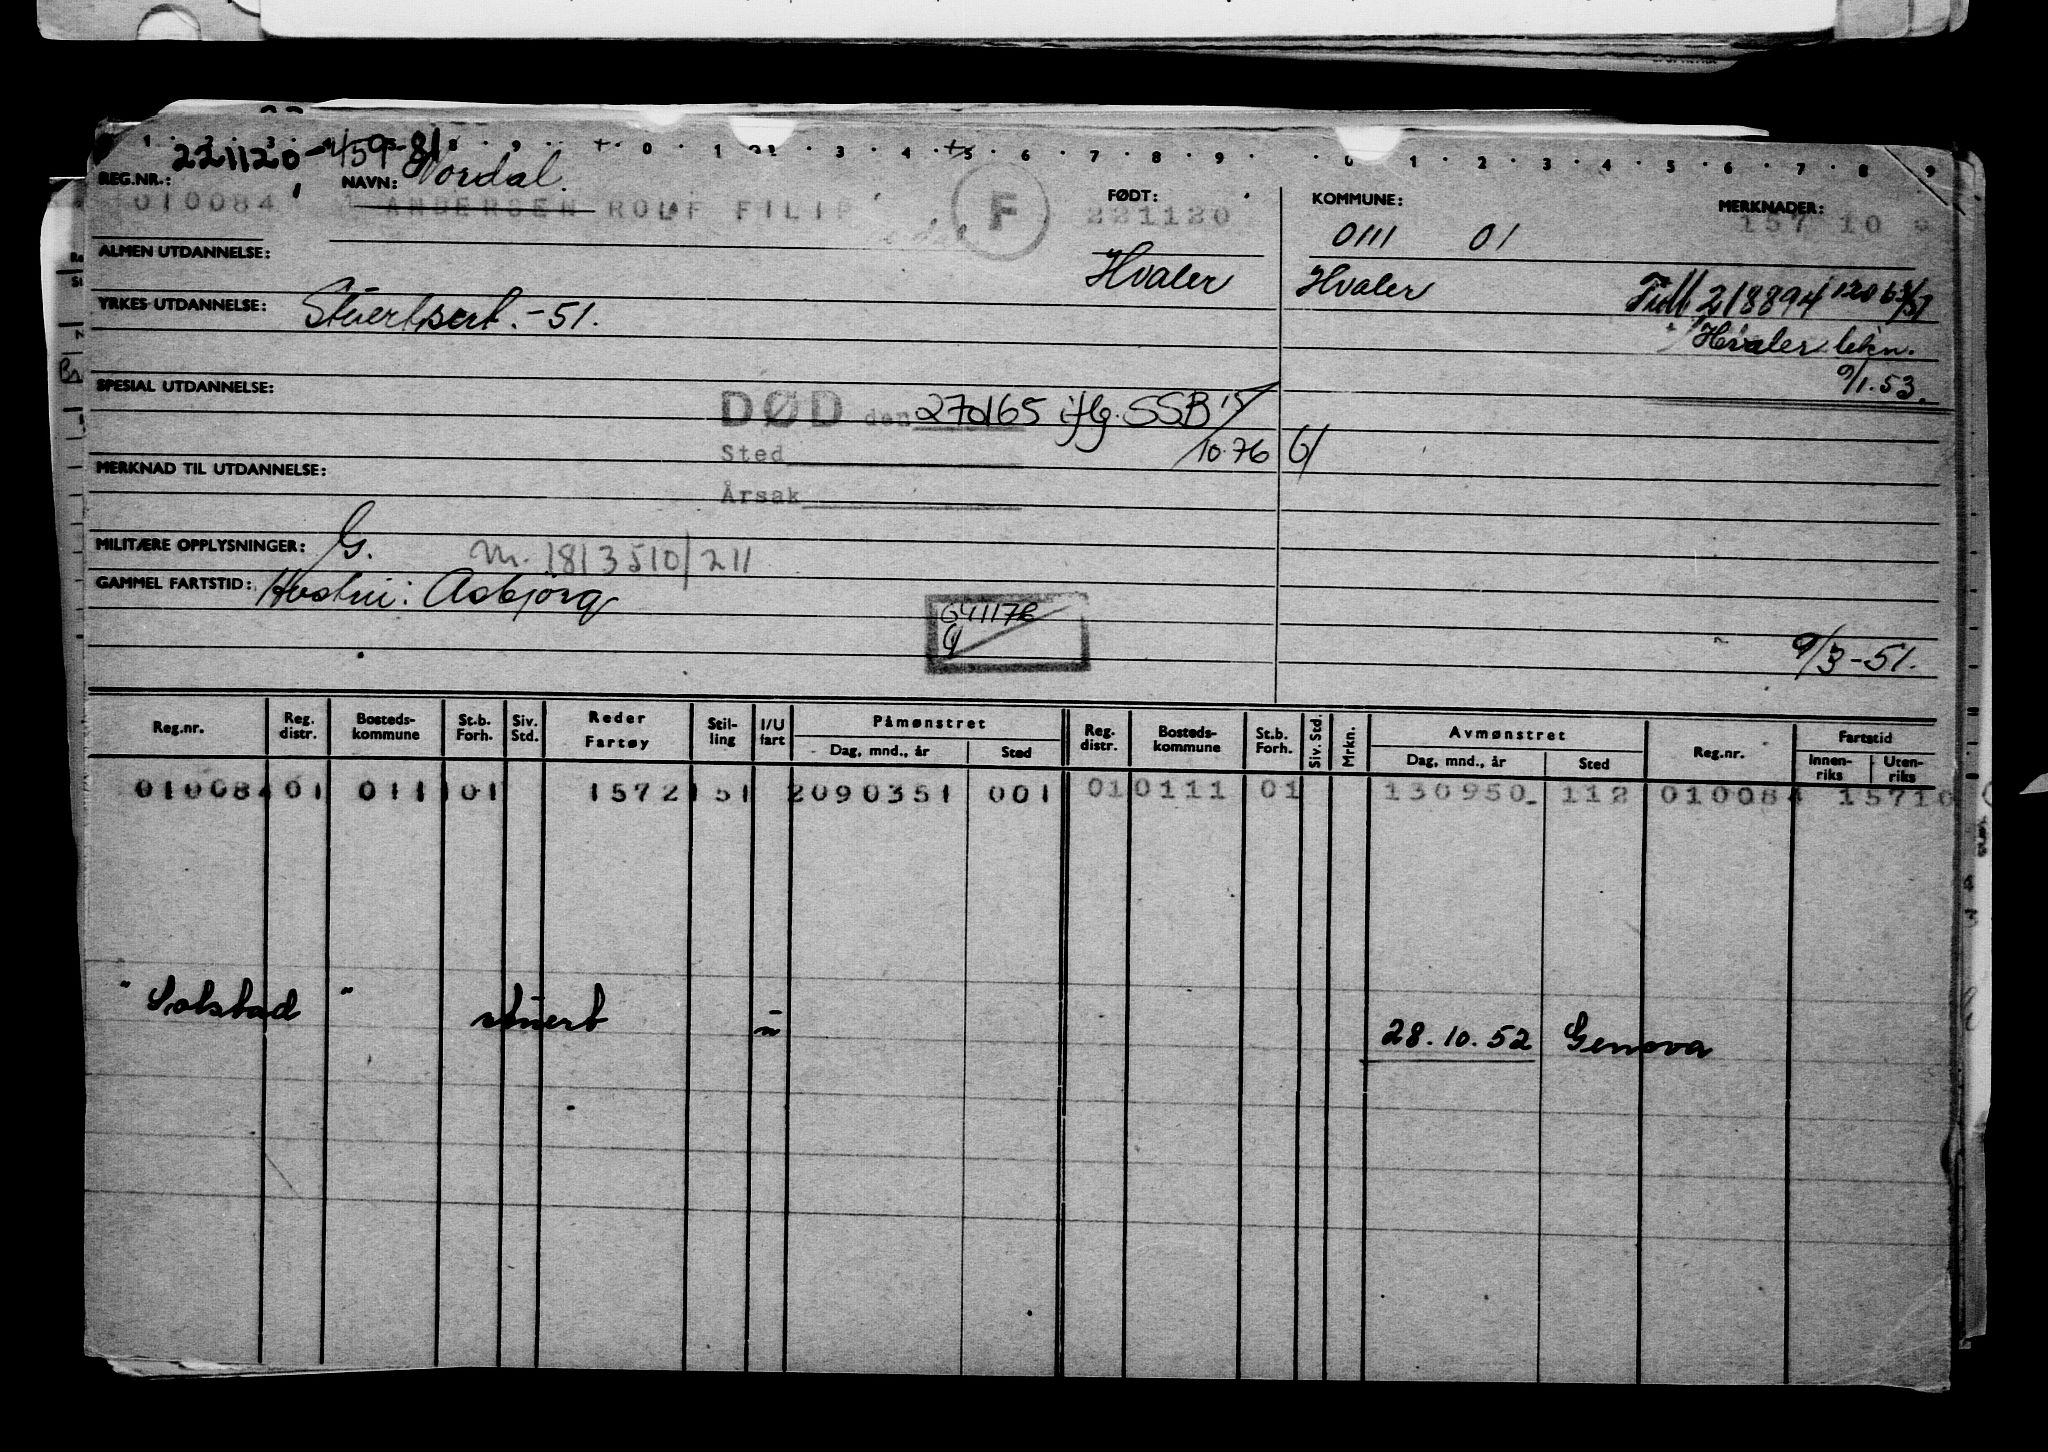 1 2 3 8 9 + 0 1 2 3 4 5 6 7 8 9 0 1 2 3 4 5 6 7 8 9
221120-45981
REG.NR.: NAVN: Nordal. FØDT: KOMMUNE: MERKNADER:
010084 ANDERSEN ROLF FILIP F 221120 0111 01 157 10
ALMEN UTDANNELSE: Hvaler Hvaler
YRKES-UTDANNELSE: Stuertsert. -51. 218894
Hvaler lekn.
9/1.53.
SPESIAL UTDANNELSE:
DØD den 270165 iflg. SSB 15/10.76
Sted
MERKNAD TIL UTDANNELSE:
Årsak
MILITÆRE OPPLYSNINGER: G. M. 1813510/211
GAMMEL FARTSTID: Hustru: Asbjørg
041176
9/3-51.
Reg.nr. Reg. distr. Bosteds- kommune St.b. Forh. Siv. Std. Reder Fartøy Stil- ling I/U fart Påmønstret Reg. distr. Bosteds- kommune St.b. Forh. Siv. Std. Mrkn. Avmønstret Reg.nr. Fartstid
Dag, mnd., år Sted Dag, mnd., år Sted Innen- riks Uten- riks
010084 01 011 101 1572 151 2090351 001 01 0111 01 130950 112 010084 15710
" Solstad " stuert u 28.10.52 Genova